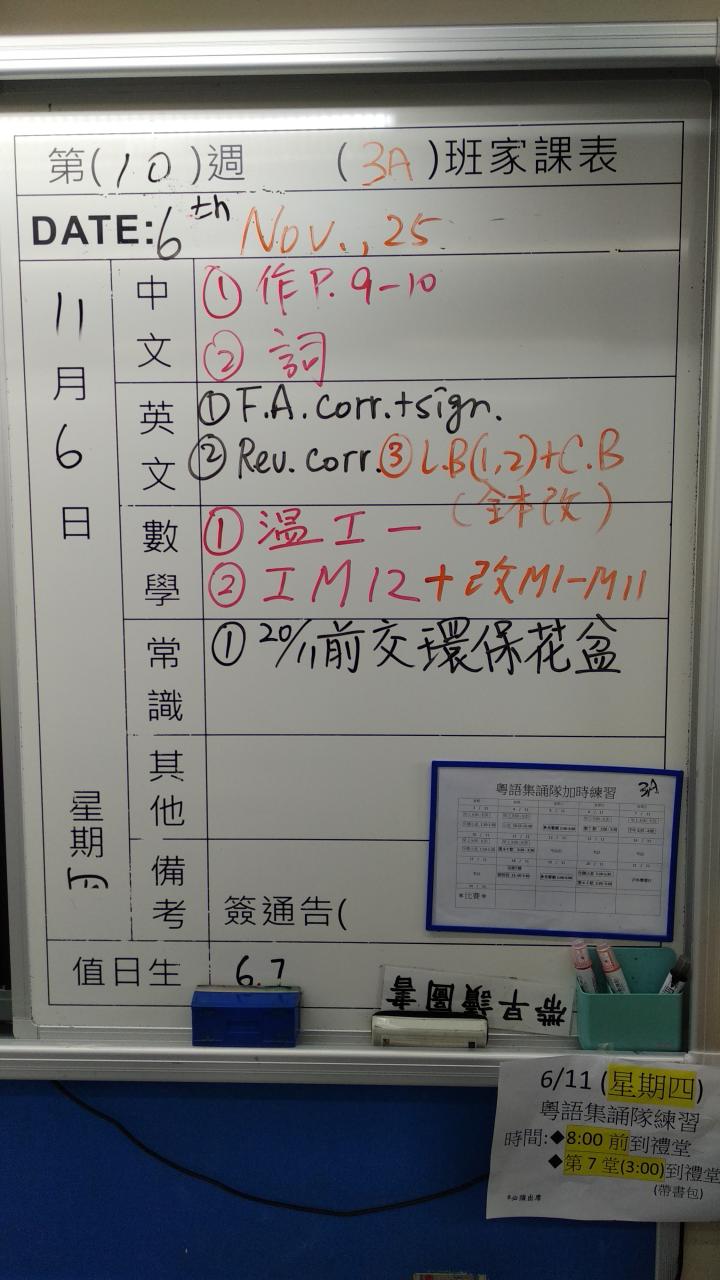 第(10)週 (3A)班家課表
DATE:6th Nov.,25
11月6日
星期
中文
①作P.9-10
②詞
英文
①F.A.corr.+sign.
②Rev.corr.③L.B(1,2)+C.B
(全本改)
數學
①溫工一
②工M12+改M1-M11
常識
①20/11前交環保花盆
其他
備考
簽通告(
值日生
6.7
粵語集誦隊加時練習
3A
帶早讀圖書
6/11 (星期四)
粵語集誦隊練習
時間:◆8:00 前到禮堂
◆第 7 堂(3:00)到禮堂
(帶書包)
*必須出席